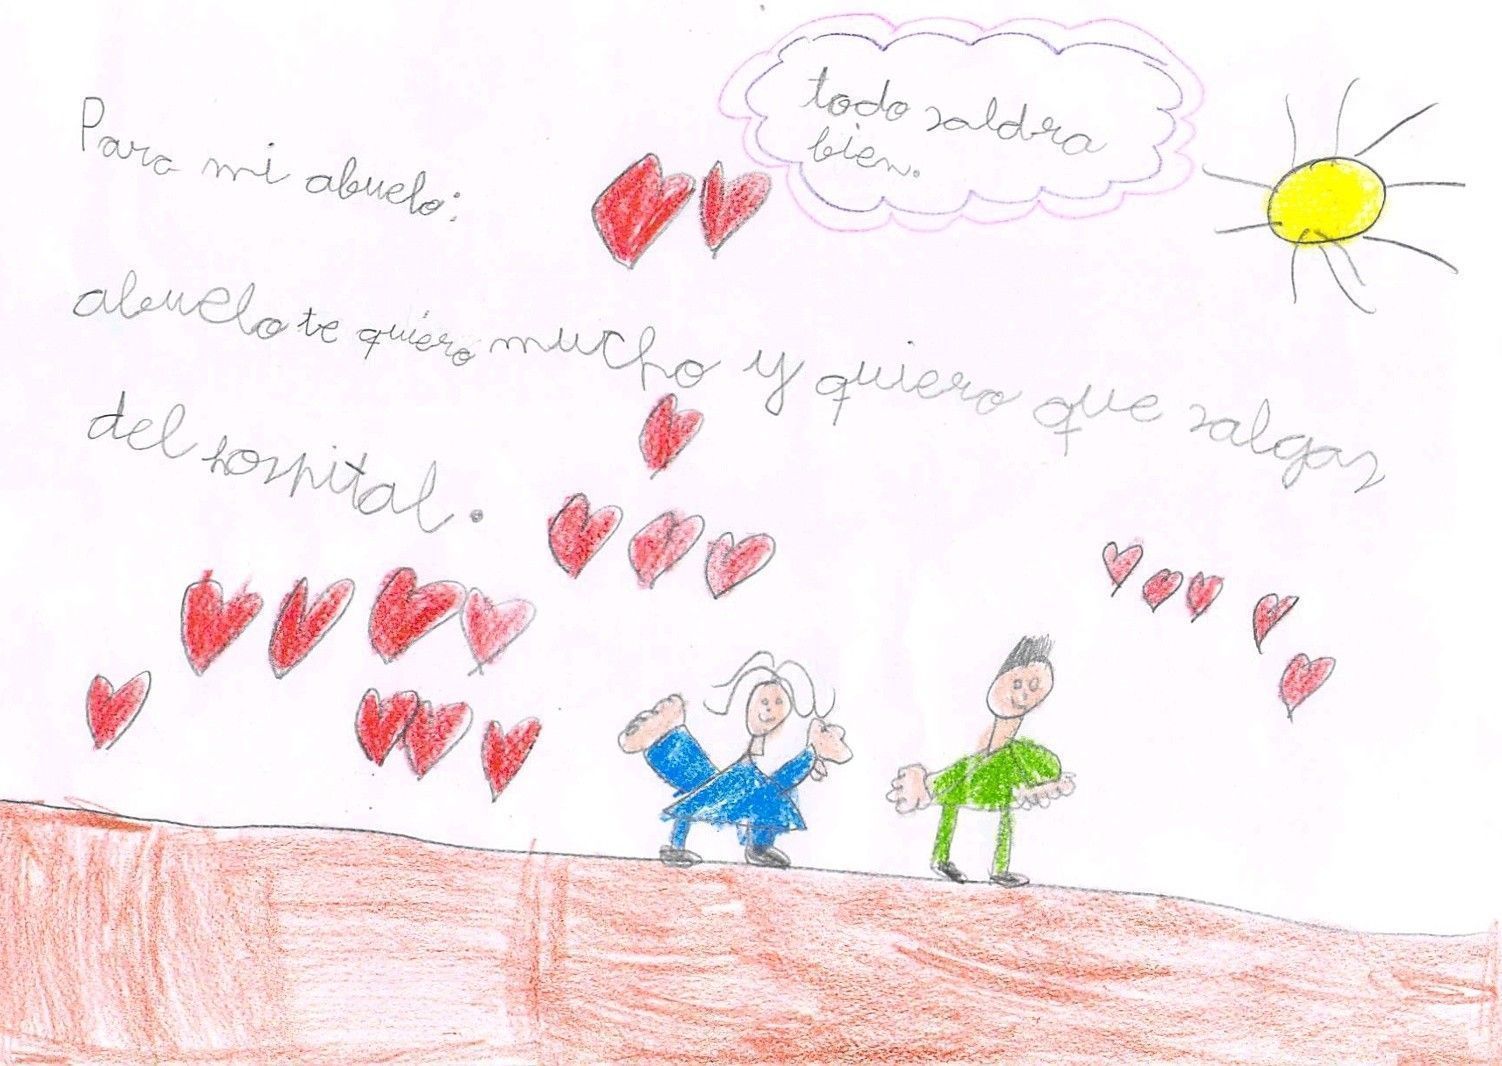 Para mi abuelo:
todo saldra
bien.
abuelo te quiero mucho y quiero que salgas
del hospital.